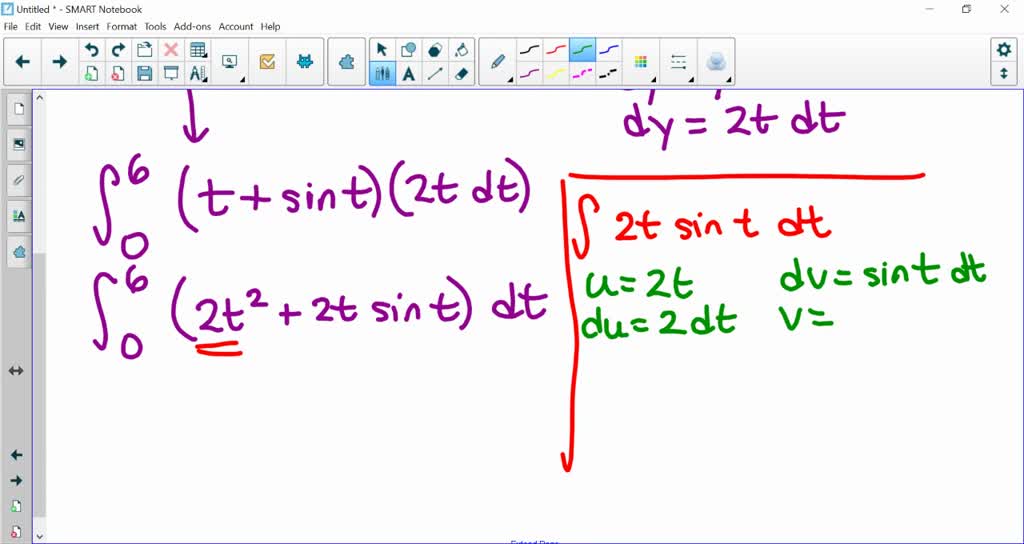 Untitled * - SMART Notebook
File Edit View Insert Format Tools Add-ons Account Help
dy = 2t dt
∫₀⁶ (t + sin t)(2t dt)
∫₀⁶ (2t² + 2t sin t) dt
∫ 2t sin t dt
u = 2t dv = sin t dt
du = 2 dt v =